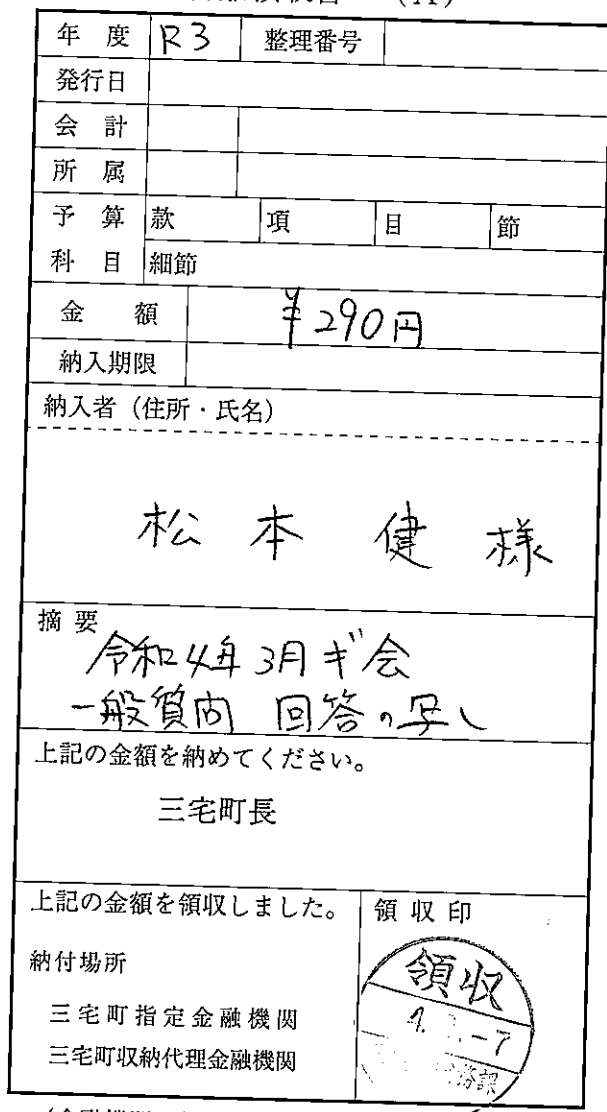 年度 R3 整理番号
発行日
会計
所属
予算 款 項 目 節
科目 細節
金額 ¥290円
納入期限
納入者（住所・氏名）
松本 健 様
摘要
令和4年3月ギ会
一般質問 回答の写し
上記の金額を納めてください。
三宅町長
上記の金額を領収しました。 領収印
納付場所
三宅町指定金融機関
三宅町収納代理金融機関
領収
-7
務課